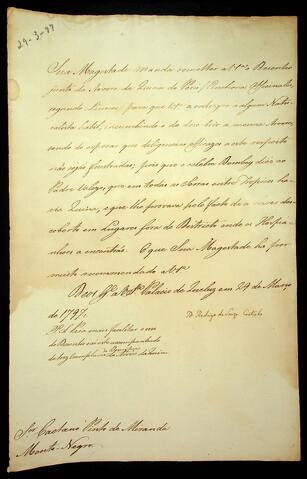 29-3-97
Sua Magestade manda remetter a V.S.ª o Dezenho
junto da Arvore da Quina do Perú
segundo Linneo, para que V.S.ª o entregue a algum Natu-
ralista habil, incumbindo o de descobrir a mesma Arvore,
sendo de esperar que diligencias efficazes a este respeito
não sejão frustradas; pois que o celebre Banks disse ao
Padre Velozo, que em todas as Serras entre Tropicos ha-
via Quina, e que lho provava pelo facto de a haver des-
coberto em Lugares fora do Districto onde os Hespa-
nhoes a encontrão. O que Sua Magestade ha por
muito recommendado a V.S.ª
Deos G.e a V.S.ª Palacio de Queluz em 24 de Março
de 1797.
D. Rodrigo de Souza Coutinho
P.S. Para mais facilitar o
de Quina
Snr. Caetano Pinto de Miranda
Monte-Negro.